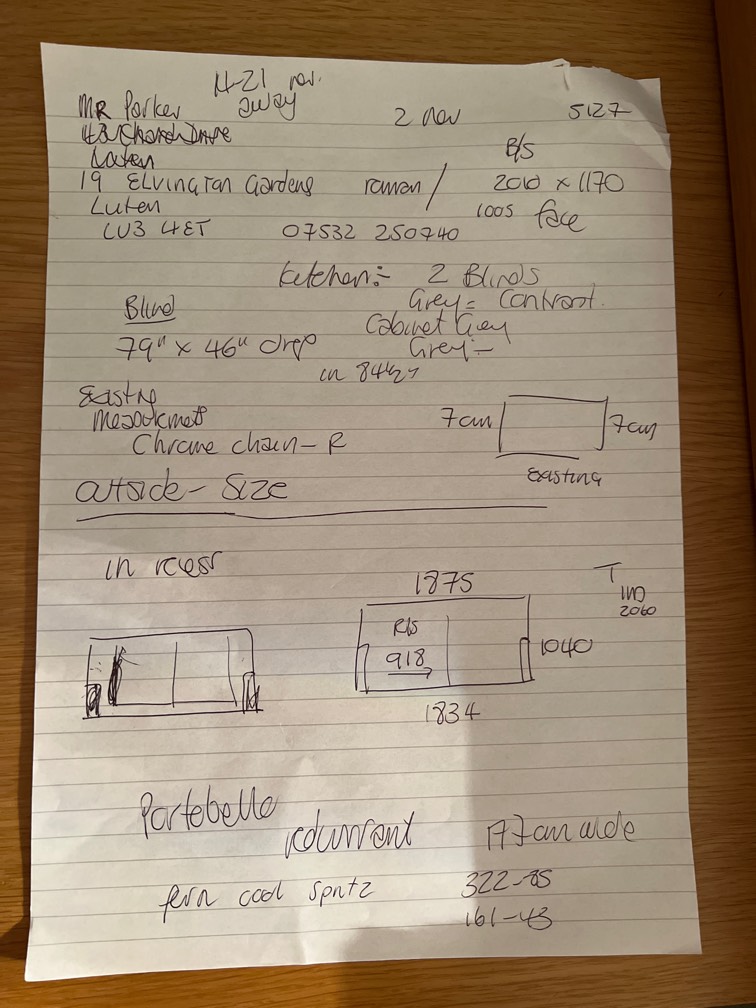 14-21 nov.
away
MR Parker 2 nov 5127
Luten B/S
19 ELVINGTON Gardens roman / 2010 x 1170
Luten 100S face
LU3 4ET 07532 250740
Kitchen:- 2 Blinds
Blind Grey = Contrast.
Cabinet Grey
79" x 46" drop Grey -
in 84½"
Existing
Measurements 7cm 7cm
Chrome chain - R
Existing
outside - Size
in recess
1875
T
IND
2060
R/S
918 1040
1834
Portebello
redcurrant 17.7cm wide
fern cool spritz 322-85
161-43